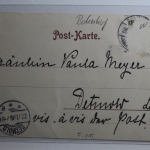 Bahnhof
Post-Karte.
Fräulein Paula Meyer
Detmold
vis à vis der Post